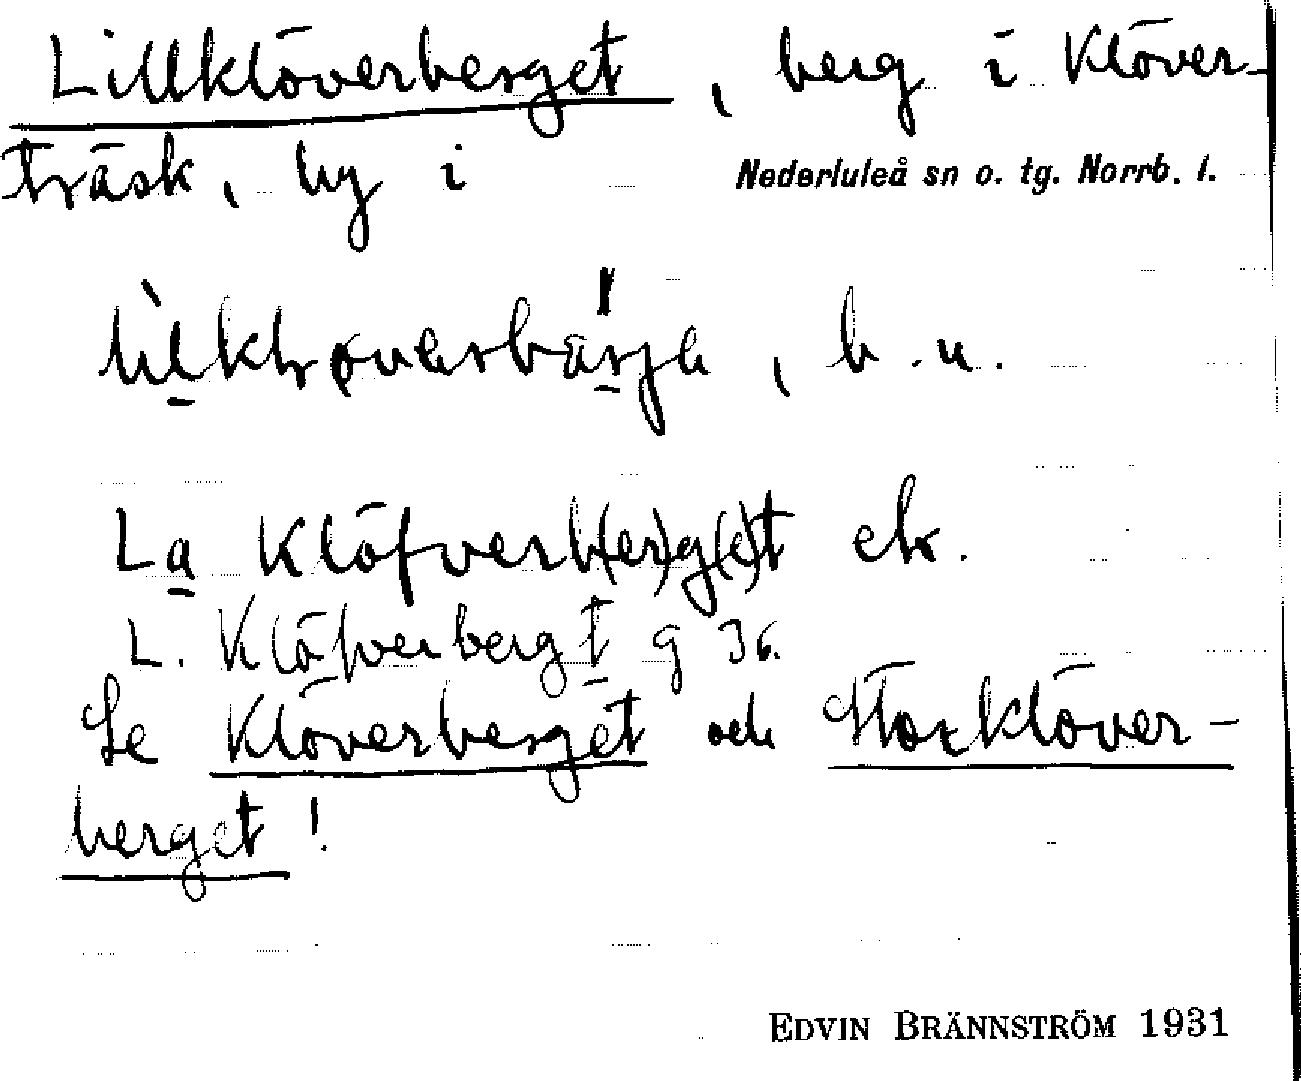 Lillklöverberget, berg i Klöver-
träsk, by i Nederluleå sn o. tg. Norrb. l.
b.u.
La Klöfverb(er)g(e)t ek.
L. Klöfverbergt g 36.
Se Klöverberget och Storklöver-
berget!
EDVIN BRÄNNSTRÖM 1931